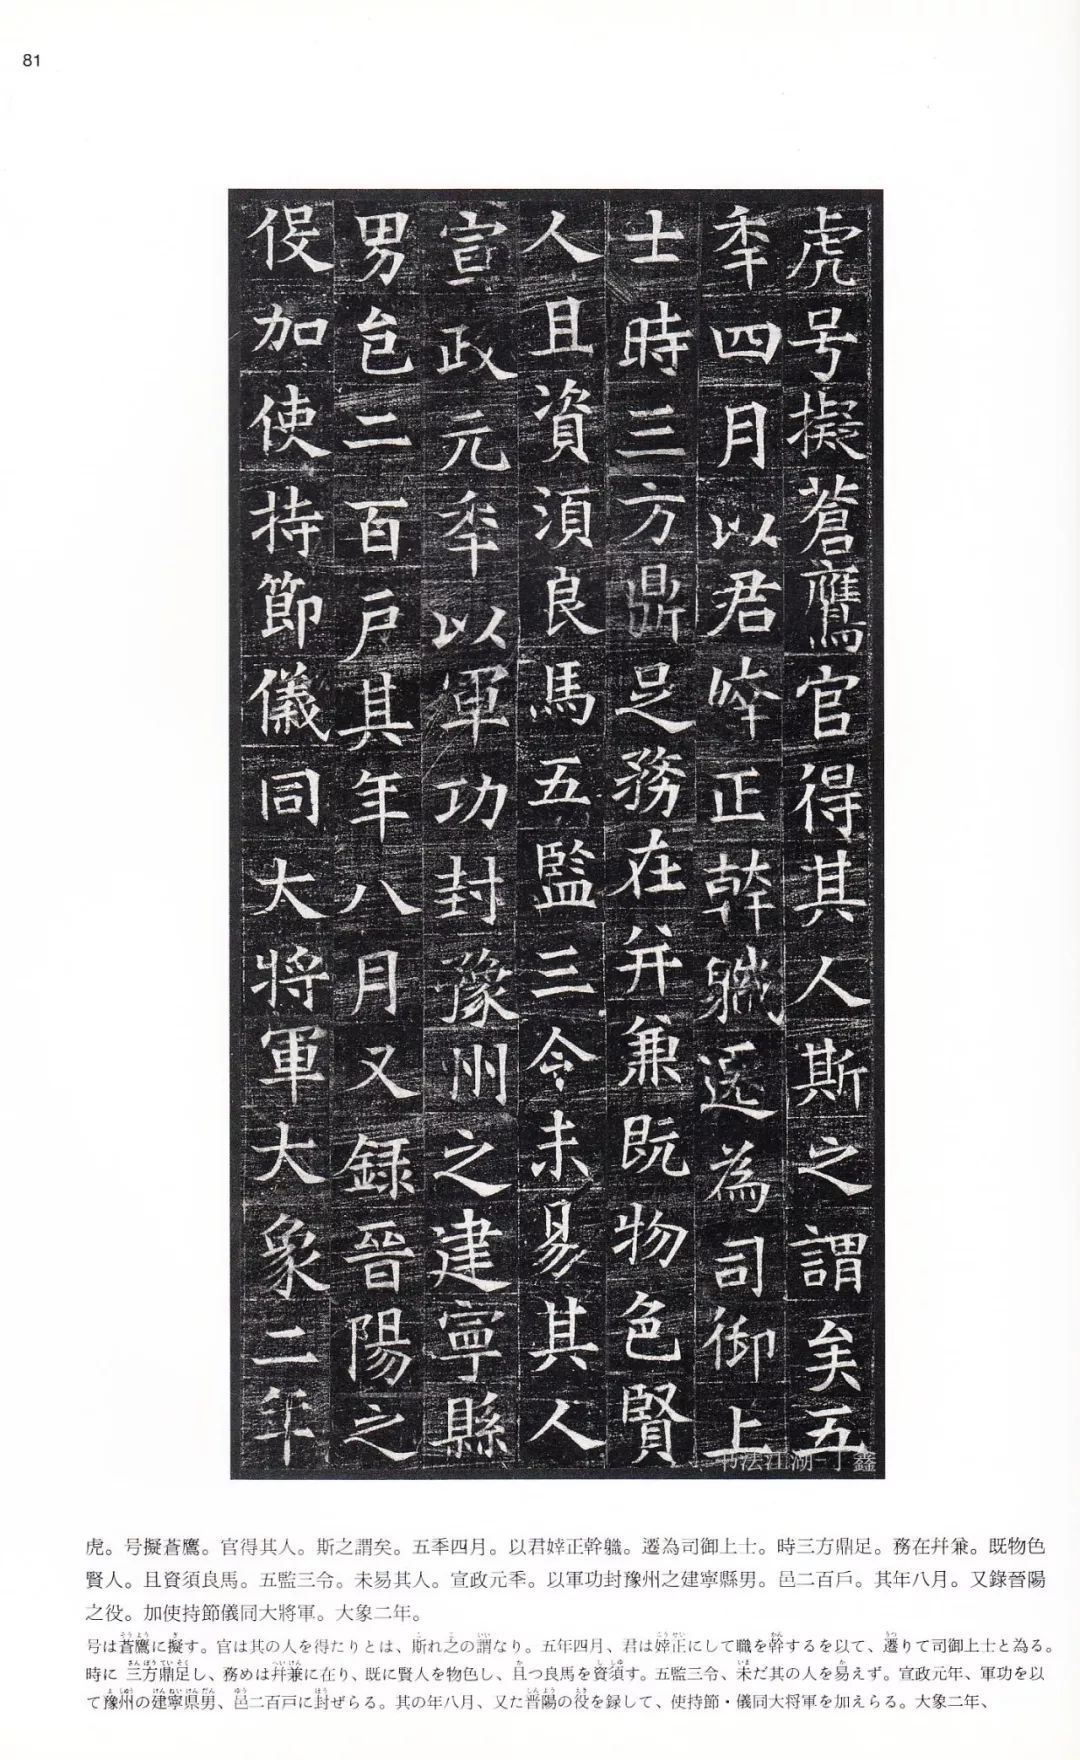 81
虎号擬蒼鷹官得其人斯之謂矣五
秊四月以君婞正幹軄遷為司御上
士時三方鼎足務在并兼既物色賢
人且資須良馬五監三令未易其人
宣政元秊以軍功封豫州之建寧縣
男邑二百戶其年八月又録晉陽之
役加使持節儀同大將軍大象二年
书法江湖-丁鑫
虎。号擬蒼鷹。官得其人。斯之謂矣。五秊四月。以君婞正幹軄。遷為司御上士。時三方鼎足。務在幷兼。既物色
賢人。且資須良馬。五監三令。未易其人。宣政元秊。以軍功封豫州之建寧縣男。邑二百戶。其年八月。又錄晉陽
之役。加使持節儀同大將軍。大象二年。
号は蒼鷹に擬す。官は其の人を得たりとは、斯れ之の謂なり。五年四月、君は婞正にして職を幹するを以て、遷りて司御上士と為る。
時に 三方鼎足し、務めは幷兼に在り、既に賢人を物色し、且つ良馬を資須す。五監三令、未だ其の人を易えず。宣政元年、軍功を以
て豫州の建寧県男、邑二百戸に封ぜらる。其の年八月、又た晋陽の役を録して、使持節・儀同大将軍を加えらる。大象二年、